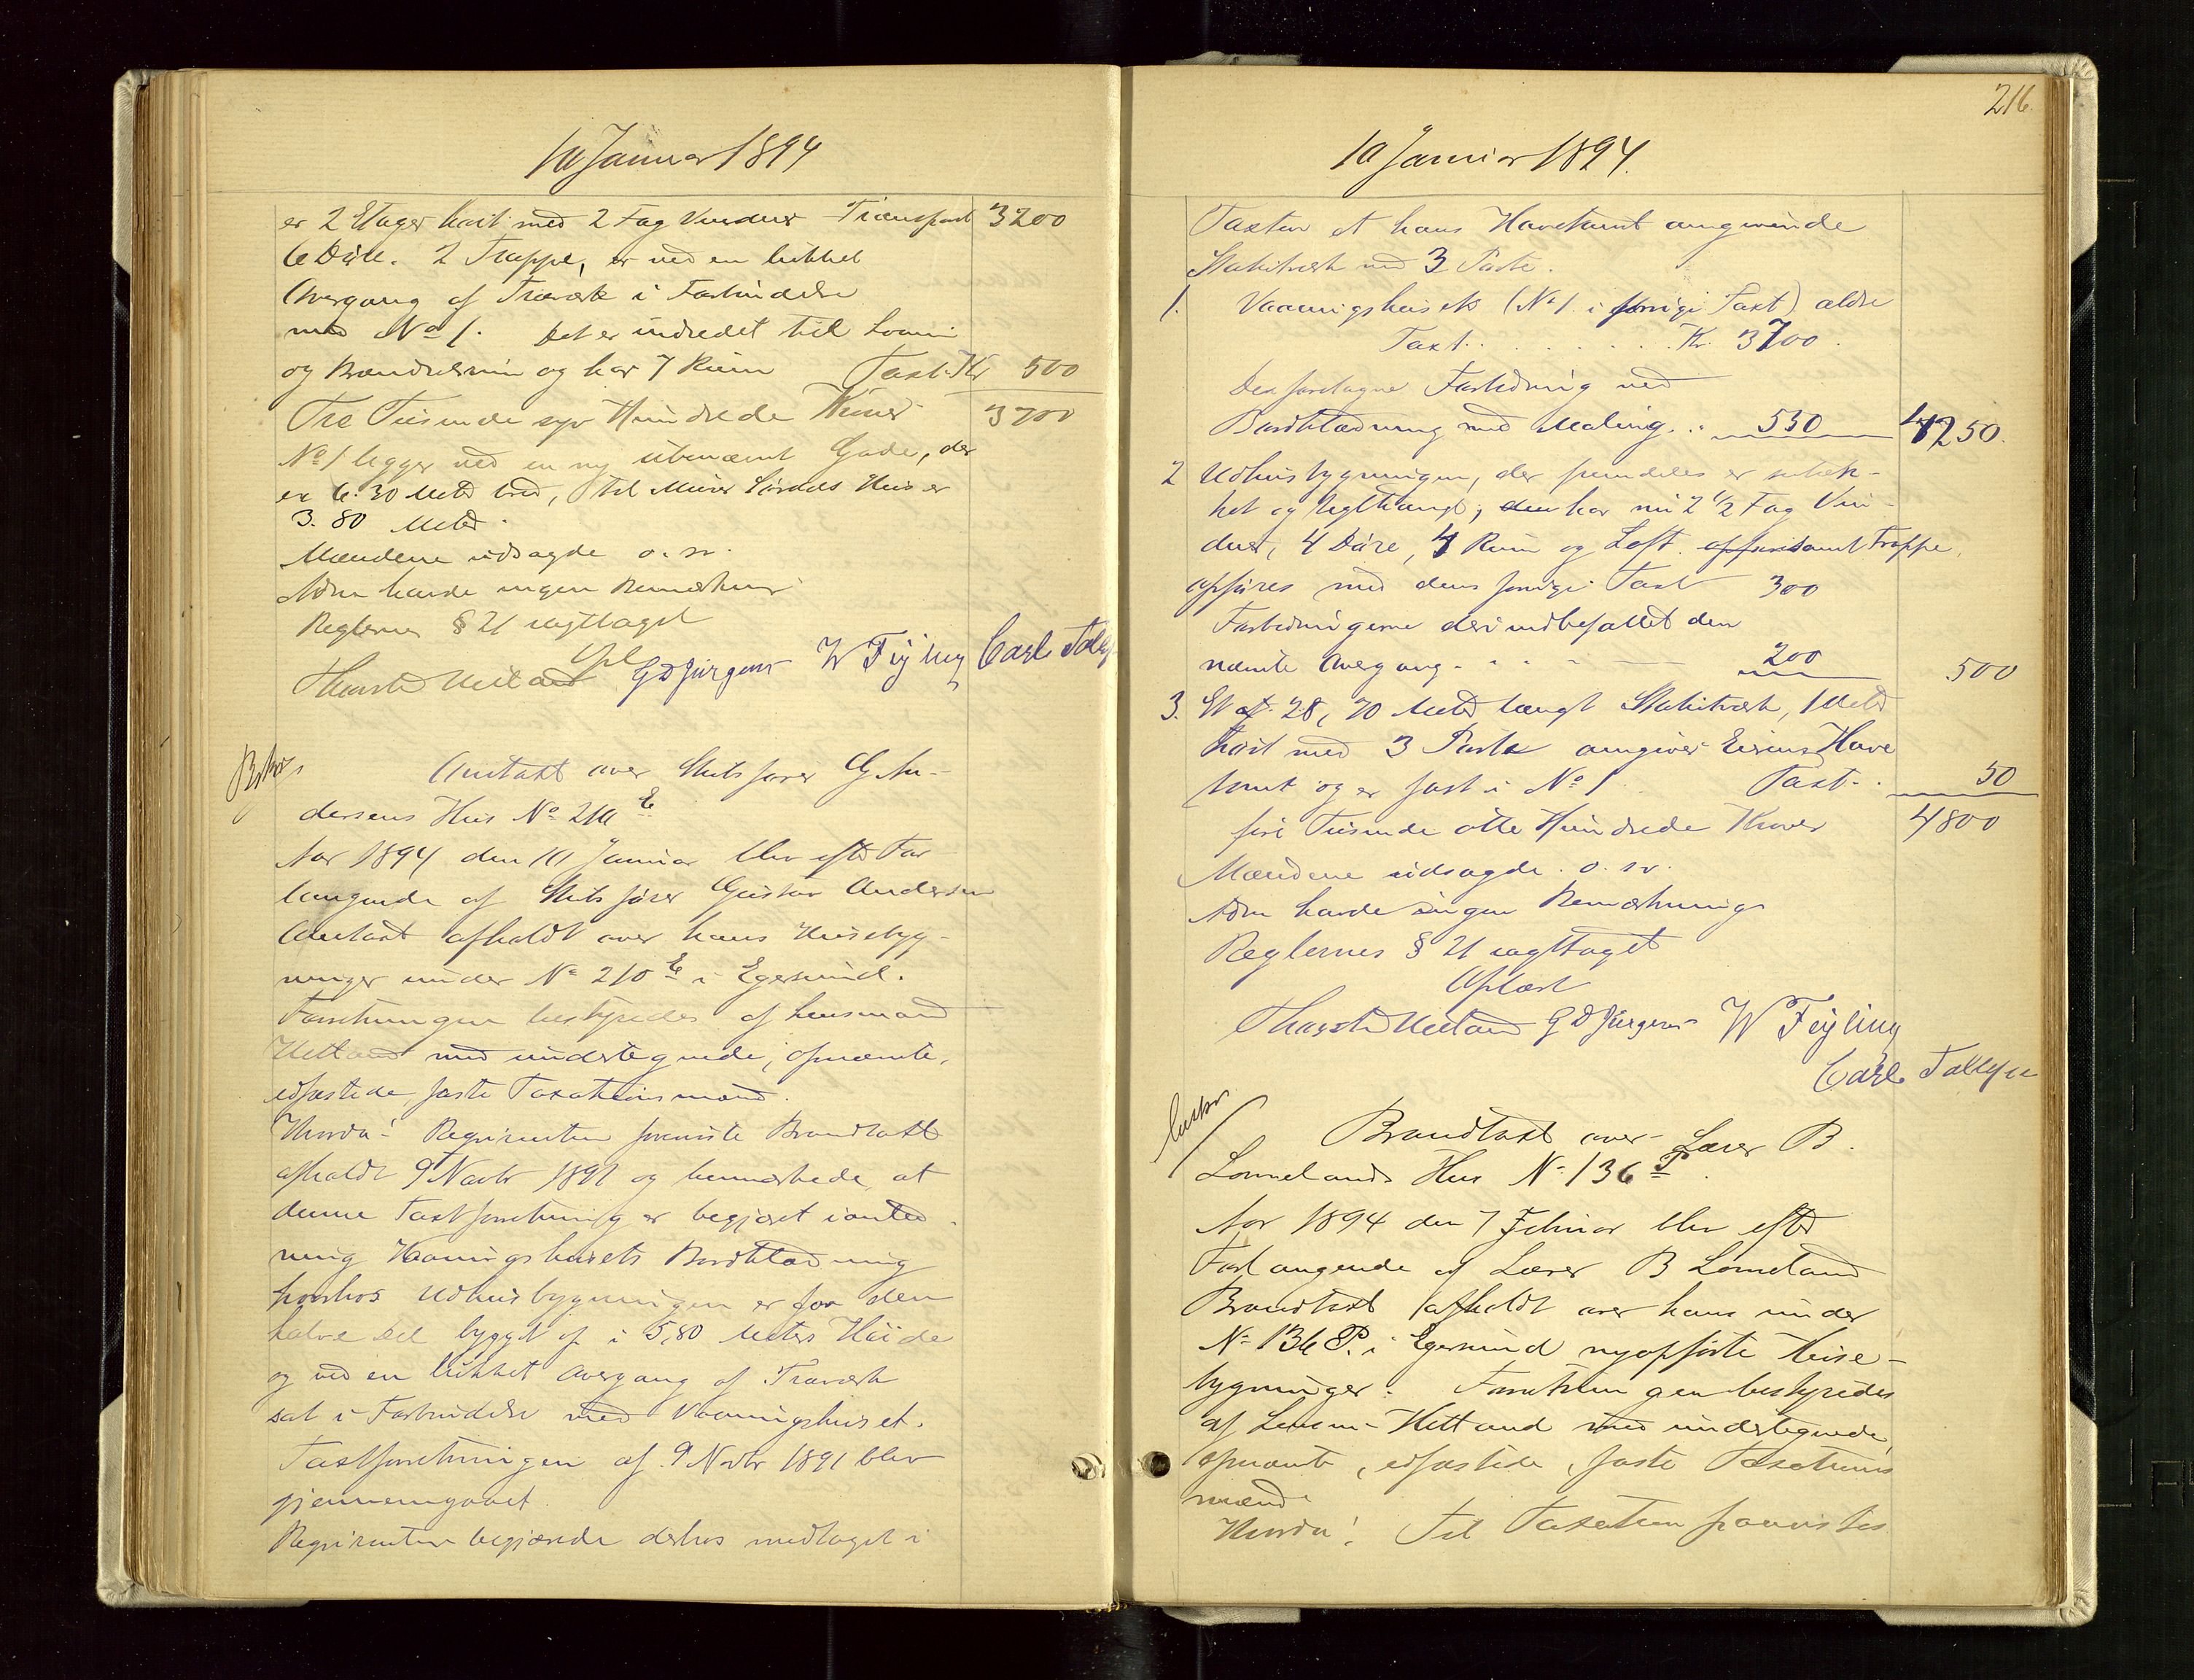 10 Januar 1894
er 2 Etager höit med 2 Fag Vinduer Transport 3200
6 Döre. 2 Trappe, er ved en lukket
Overgang af Træværk i Forbindelse
med No 1. Det er indredet til
og Brænderum og har 7 Rum Taxt. Kr 500
Tre Tusinde syv Hundrede Kroner 3700
No 1 ligger ved en ny ubenævnt Gade, der
er 6.30 Meter bred, til Murer Hus er
3.80 Meter.
Mændene udsagde o. sv.
havde ingen Bemærkning
Reglernes § 21 iagttaget
Opl
Hetland G D Jürgens W Feyling Carl Tolly

Omtaxt over Skibsfører G An-
dersens Hus No 210 E
Aar 1894 den 10 Januar blev efter For
langende af Skibsfører Gustav Andersen
Omtaxt afholdt over hans Husebyg-
ninger under No 210 E i Egersund.
Forretningen bestyredes af Lensmand
Hetland med undertegnede, opnævnte,
edfæstede faste Taxationsmænd.
Hvorda! Reqvirenten foreviste Brandtaxt
afholdt 9 Novbr 1891 og bemærkede, at
denne Taxtforretning er begjæret i anled
ning Vaaningshusets Bordklædning
hvorhos Udhusbygningen er for den
halve Del bygget op i 5,80 Meters Höide
og ved en lukket Overgang af Træværk
sat i Forbindelse med Vaaningshuset.
Taxtforretningen af 9 Novbr 1891 blev
gjennemgaaet.
Reqvirenten begjærede derhos medtaget i

216.
10 Januar 1894.
Taxten et hans Havetomt omgivende
Stakitværk med 3 Porte.
1. Vaaningshuset (No 1 i forrige Taxt) ældre
Taxt. . . . . . . . Kr. 3700.
Den foretagne Forbedring med
Bordklædning med Maling. . 550 4250.
2 Udhusbygningen, der fremdeles er
ket og teglhængt; den har nu 2 1/2 Fag Vin-
duer, 4 Döre, 4 Rum og Loft samt Trappe
opföres med dens forrige Taxt 300
Forbedringerne deri indbefattet den
nævnte Overgang. . . . 200 500
3. Et 28,70 Meter langt Stakitværk, 1 Meter
höit med 3 Porte omgiver Eierens Have
tomt og er fast i No 1. Taxt. . 50
fire Tusinde otte Hundrede Kroner 4800
Mændene udsagde. o. sv.
havde ingen Bemærkninger
Reglernes § 21 iagttaget
Oplæst
Hetland G D Jürgens W Feyling
Carl Tollysen

Brandtaxt over Lærer B.
Lomelands Hus No 136 P.
Aar 1894 den 7 Februar blev efter
Forlangende af Lærer B Lomeland
Brandtaxt afholdt over hans under
No 136 P. i Egersund nyopförte Huse-
bygninger. Forretningen bestyredes
af Lensm. Hetland med undertegnede
opnævnte, edfæstede, faste Taxations
mænd.
Hvorda! Til Taxation forevistes